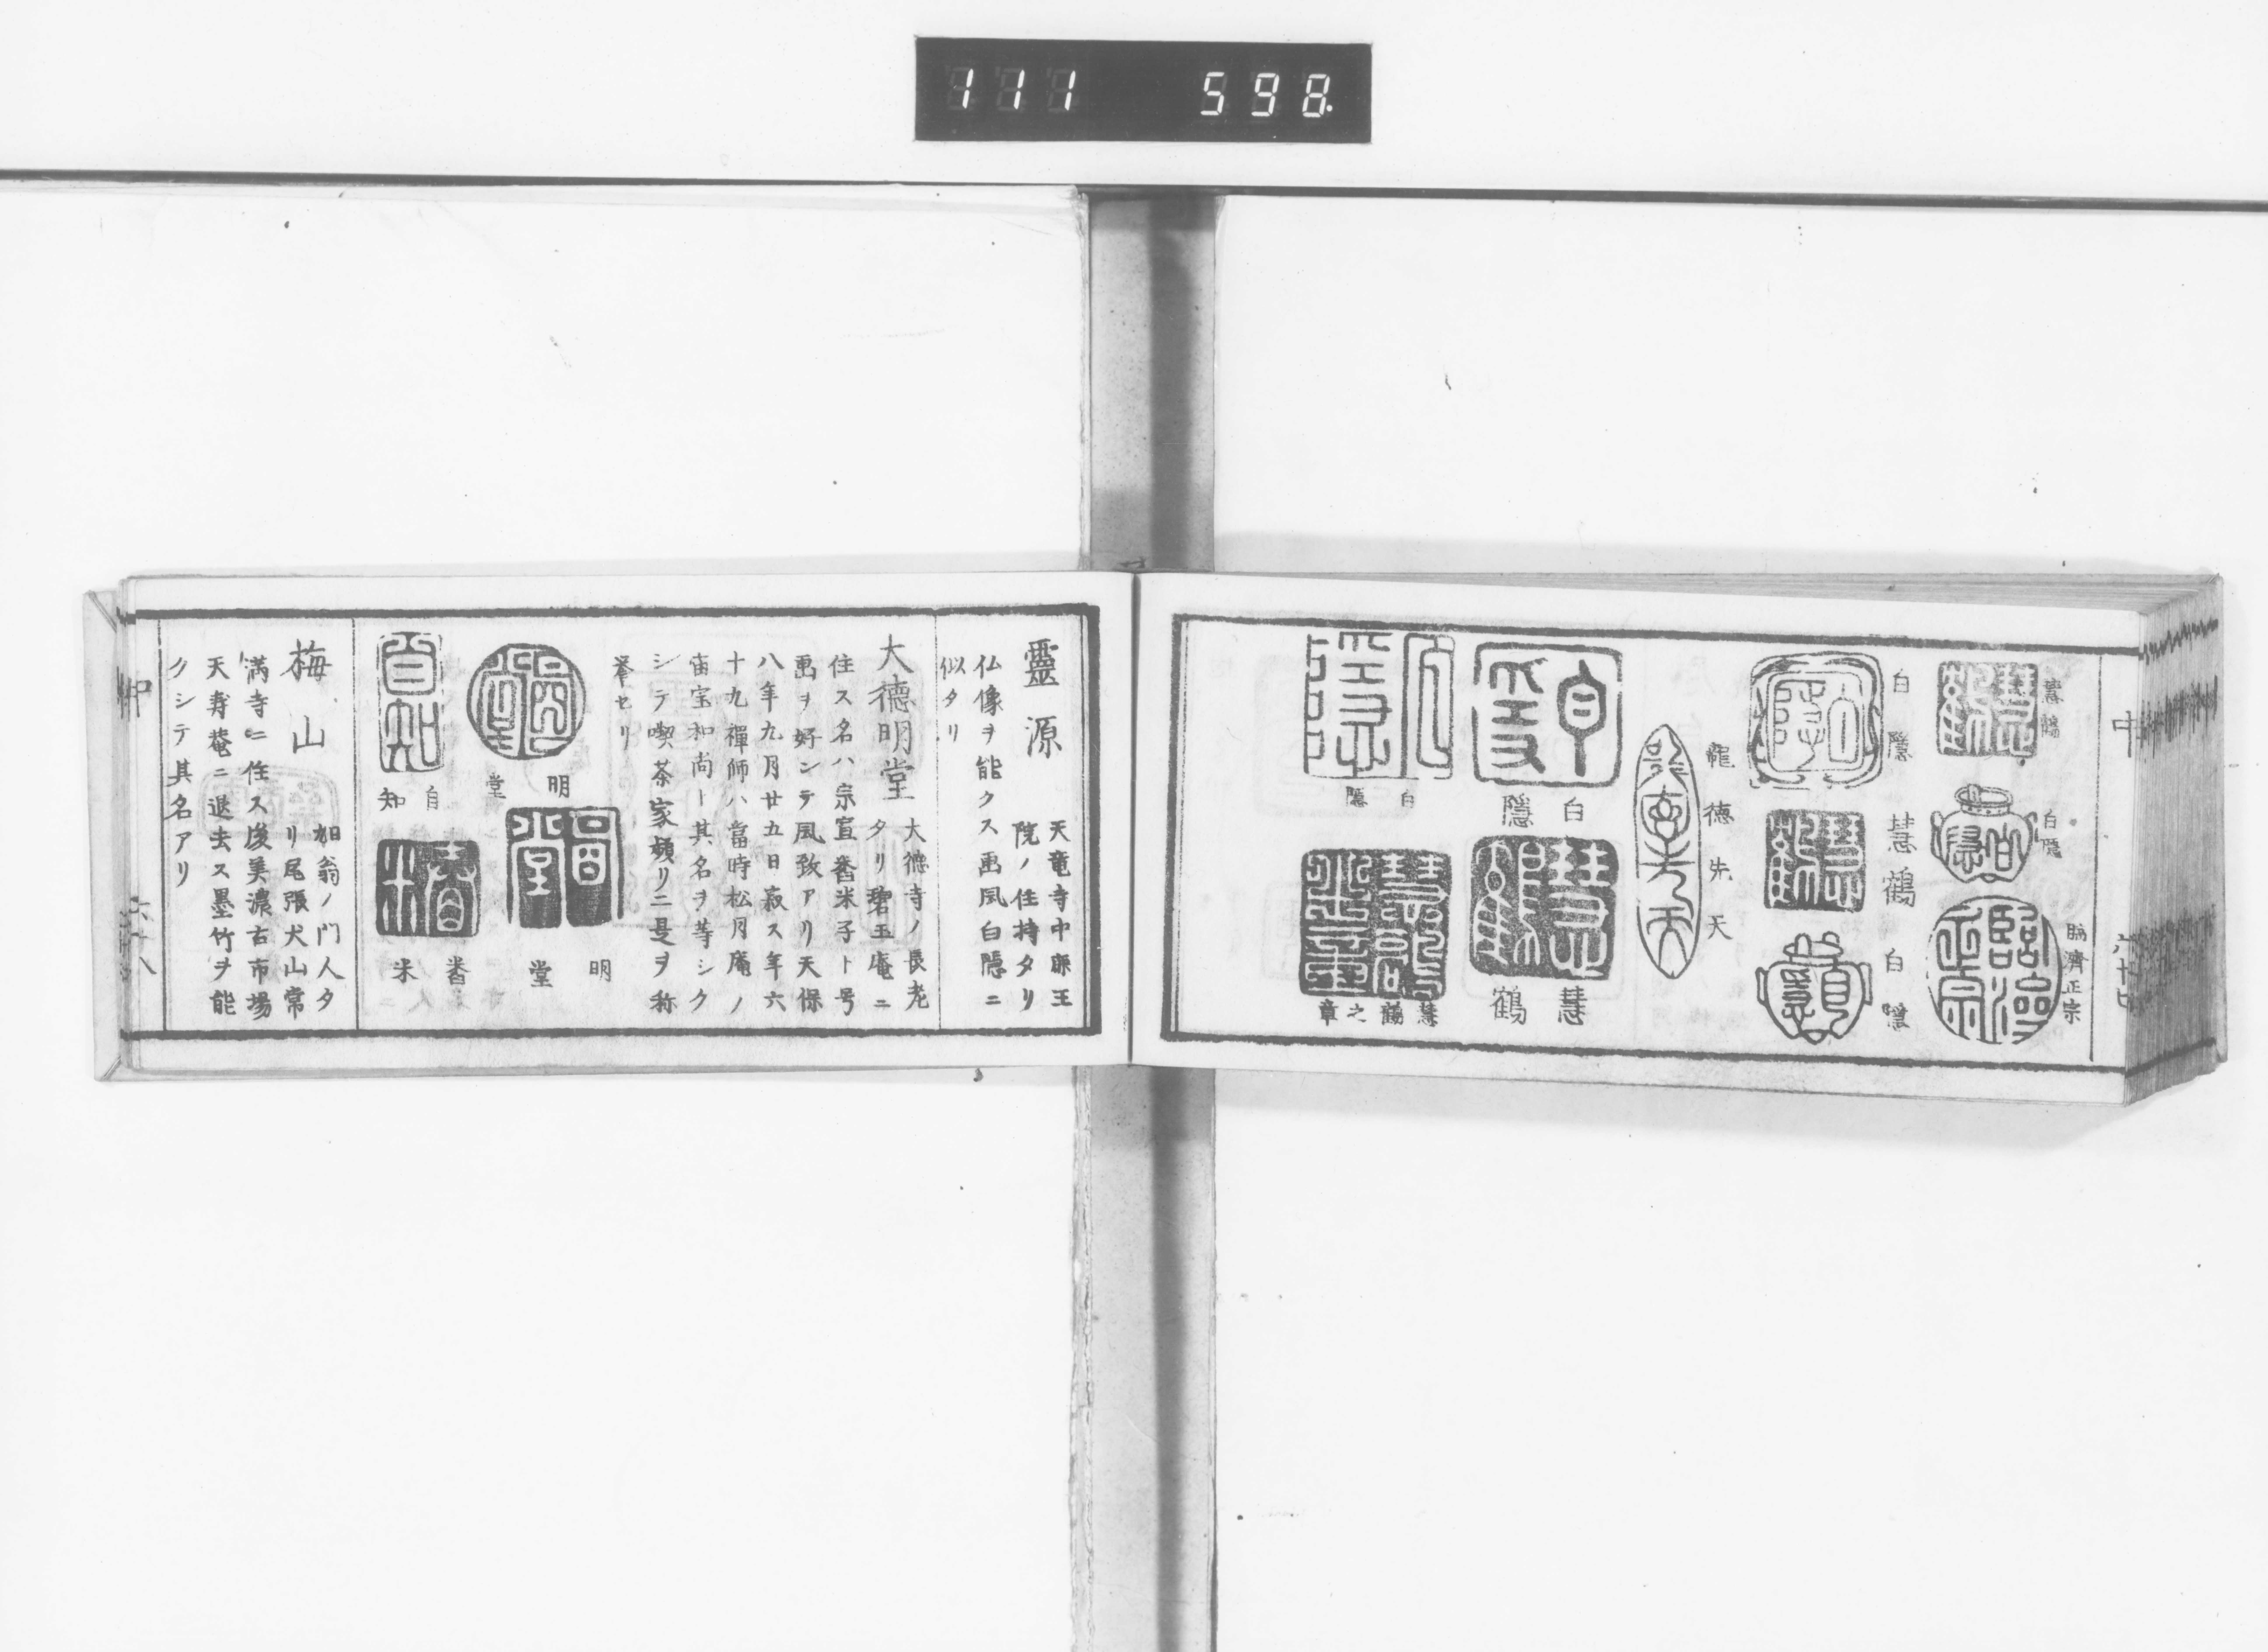 111 598.
中
六十七
慧鶴
白隠
臨濟正宗
白隱
慧鶴
白隱
龍德先天
白隱
慧鶴
白隱
慧鶴之章
靈源
天竜寺中眞王
院ノ住持タリ
仏像ヲ能クス画風白隠ニ
似タリ
大德明堂
大德寺ノ長老
タリ碧玉庵ニ
住ス名ハ宗宣春米子ト号
画ヲ好ンテ風致アリ天保
八年九月廿五日寂ス年六
十九禪師ハ當時松月庵ノ
宙宝和尚ト其名ヲ等シク
シテ喫茶家頻リニ是ヲ称
挙セリ
明堂
明堂
自知
春米
梅山
翁ノ門人タ
リ尾張犬山常
満寺ニ住ス後美濃古市場
天寿菴ニ退去ス墨竹ヲ能
クシテ其名アリ
中
六十八